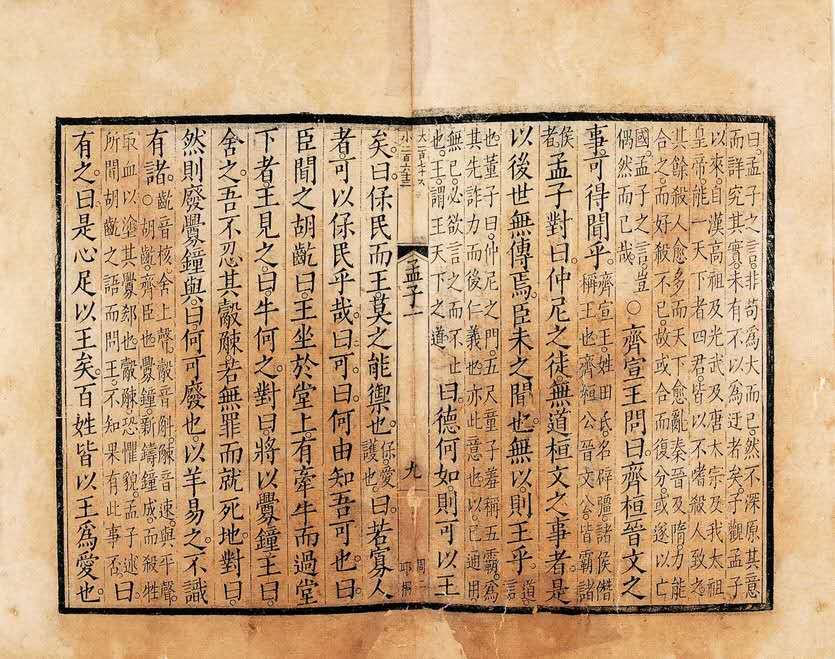 曰孟子之言非苟為大而已然不深原其意
而詳究其實未有不以為迂者矣予觀孟子
以來自漢高祖及光武及唐太宗及我太祖
皇帝能一天下者四君皆以不嗜殺人致之
其餘殺人愈多而天下愈亂秦晉及隋力能
合之而好殺不已故或合而復分或遂以亡
國孟子之言豈偶然而已哉○齊宣王問曰齊桓晉文之
事可得聞乎齊宣王姓田氏名辟彊諸侯僭稱王也齊桓公晉文公皆霸諸
侯者孟子對曰仲尼之徒無道桓文之事者是
以後世無傳焉臣未之聞也無以則王乎道言
也董子曰仲尼之門五尺童子羞稱五霸為
其先詐力而後仁義也亦此意也以已通用
無已必欲言之而不止也王謂王天下之道曰德何如則可以王
孟子一
九
矣曰保民而王莫之能禦也保愛護也曰若寡人
者可以保民乎哉曰可曰何由知吾可也曰
臣聞之胡齕曰王坐於堂上有牽牛而過堂
下者王見之曰牛何之對曰將以釁鐘王曰
舍之吾不忍其觳觫若無罪而就死地對曰
然則廢釁鐘與曰何可廢也以羊易之不識
有諸齕音核舍上聲觳音斛觫音速與平聲○胡齕齊臣也釁鐘新鑄鐘成而殺牲
取血以塗其釁郄也觳觫恐懼貌孟子述所聞胡齕之語而問王不知果有此事否曰
有之曰是心足以王矣百姓皆以王為愛也